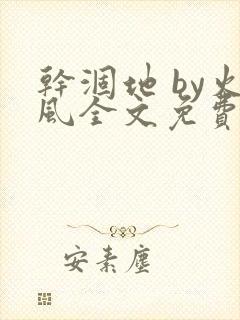 幹涸地 by火
風全文免費
安素塵